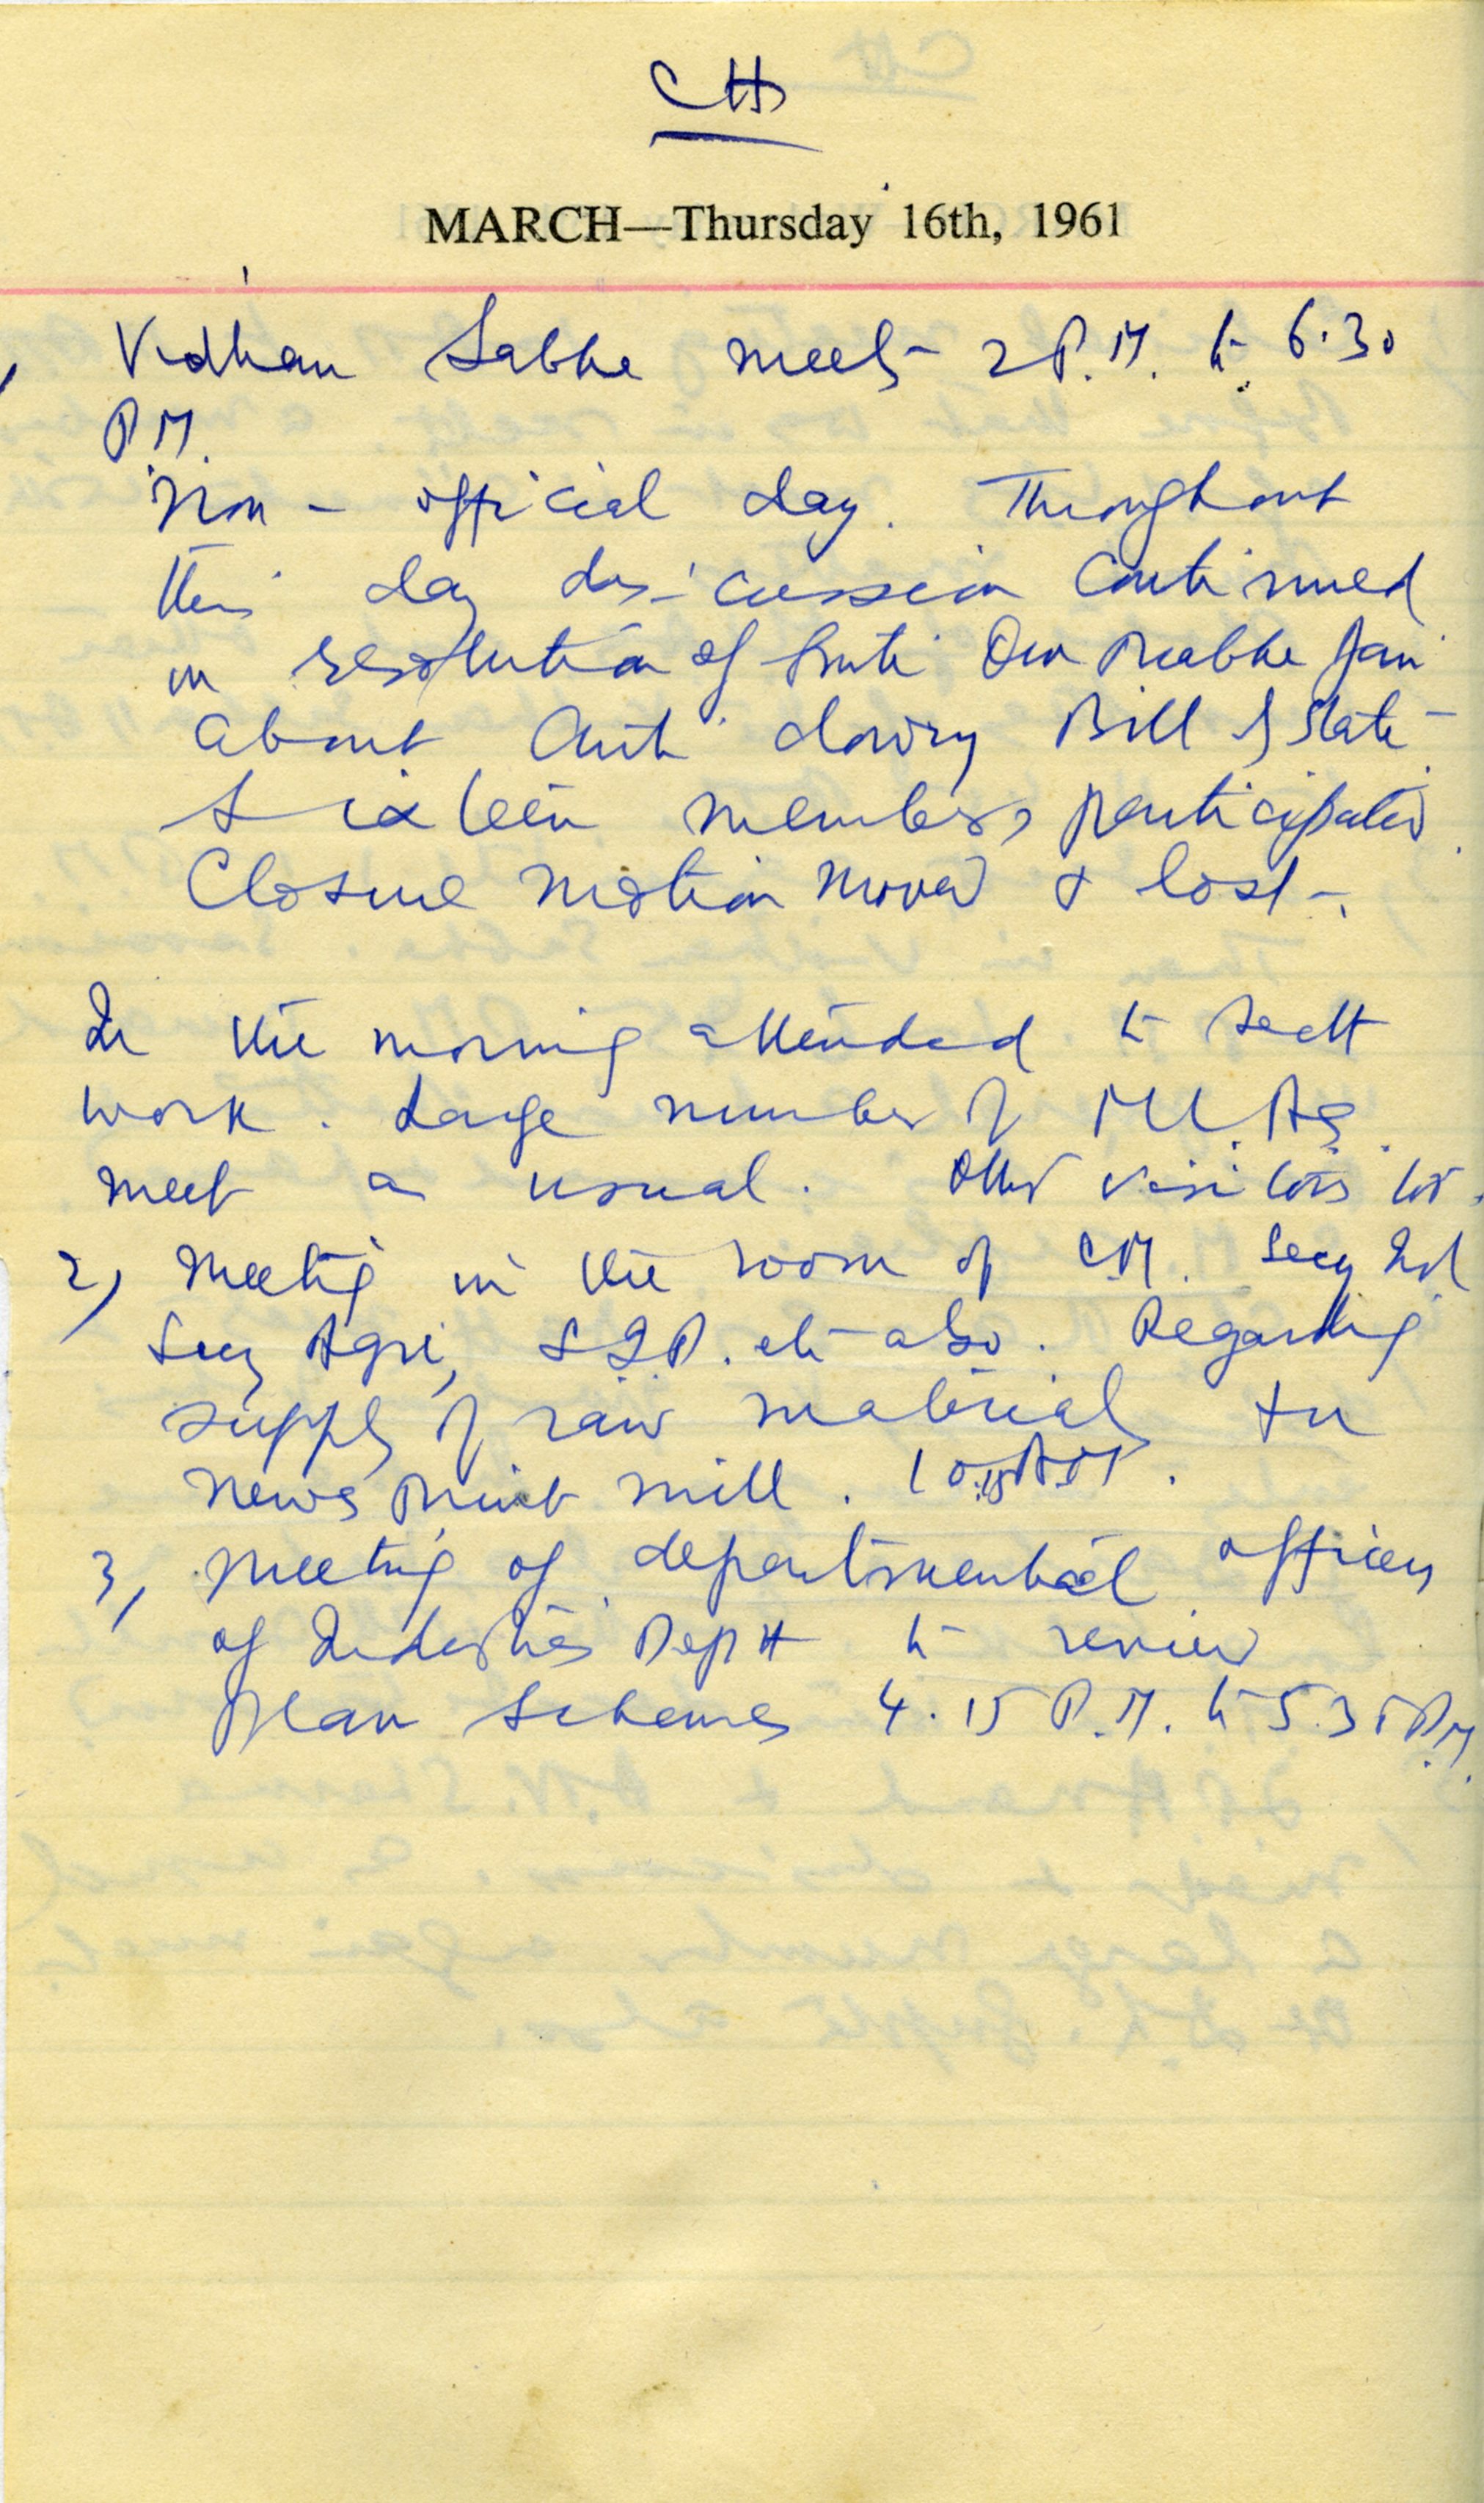 CH
MARCH—Thursday 16th, 1961
Vidhan Sabha meets 2 P.M. to 6.30
P.M.
Non-official day. Throughout
this day discussion continued
on resolution of Smti Om Prabha Jain
about Anti dowry Bill of State
Sixteen members participated.
Closure motion moved & lost.
In the morning attended to Sectt
work. Large number of M.L.As.
meet as usual. Other visitors too.
2) Meeting in the room of C.M. Secy Ind
Secy Agri, also. Regarding
supply of raw material to
news print mill. 10.15 AM.
3, Meeting of departmental officers
of Industries Deptt to review
Plan Schemes 4.15 P.M. to 5.35 P.M.